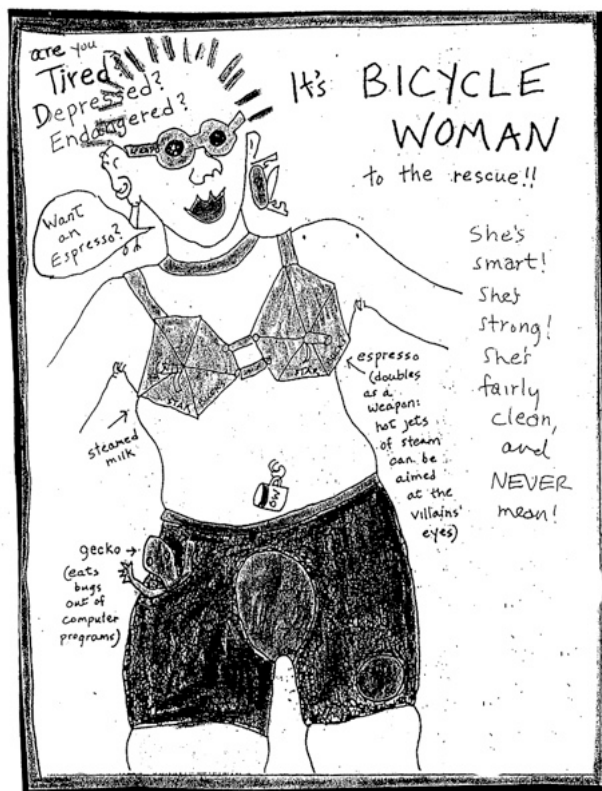 are you
Tired?
Depressed?
Endangered?
It's BICYCLE
WOMAN
to the rescue!!
Want
an
Espresso?
She's
smart!
she's
strong!
She's
fairly
clean,
and
NEVER
mean!
espresso
(doubles
as a
weapon:
hot jets
of steam
can be
aimed
at the
villains'
eyes)
steamed
milk
gecko
(eats
bugs
out of
computer
programs)